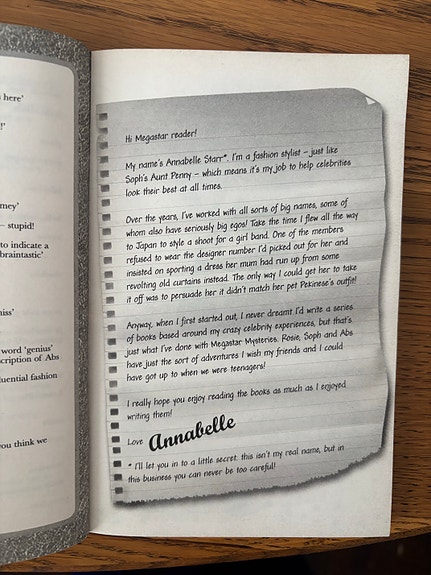 s here'
!'
mey'
– stupid!
to indicate a
braintastic'
iss'
word 'genius'
scription of Abs
fluential fashion
you think we
Hi Megastar reader!
My name's Annabelle Starr*. I'm a fashion stylist – just like
Soph's Aunt Penny – which means it's my job to help celebrities
look their best at all times.
Over the years, I've worked with all sorts of big names, some of
whom also have seriously big egos! Take the time I flew all the way
to Japan to style a shoot for a girl band. One of the members
refused to wear the designer number I'd picked out for her and
insisted on sporting a dress her mum had run up from some
revolting old curtains instead. The only way I could get her to take
it off was to persuade her it didn't match her pet Pekinese's outfit!
Anyway, when I first started out, I never dreamt I'd write a series
of books based around my crazy celebrity experiences, but that's
just what I've done with Megastar Mysteries. Rosie, Soph and Abs
have just the sort of adventures I wish my friends and I could
have got up to when we were teenagers!
I really hope you enjoy reading the books as much as I enjoyed
writing them!
Love Annabelle
* I'll let you in to a little secret: this isn't my real name, but in
this business you can never be too careful!